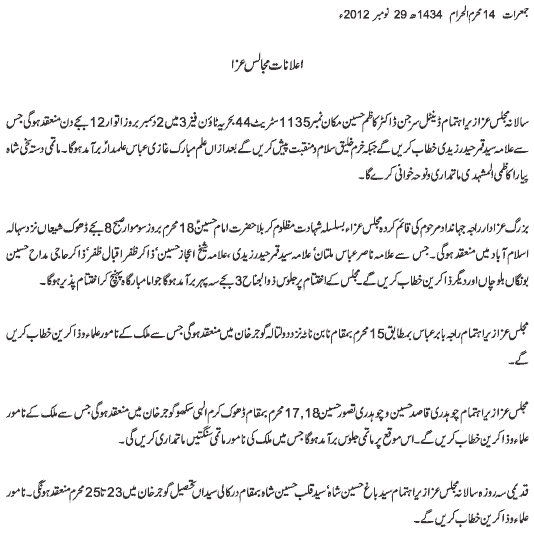 جمعرات 14 محرم الحرام 1434ھ 29 نومبر 2012ء
اعلانات مجالس عزا
سالانہ مجلس عزا زیر اہتمام ڈینٹل سرجن ڈاکٹر کاظم حسین مکان نمبر 1135 سٹریٹ 44 بحریہ ٹاؤن فیز 3 میں 2 دسمبر بروز اتوار 12 بجے دن منعقد ہوگی جس
سے علامہ سید قمر حیدر زیدی خطاب کریں گے جبکہ خرم خلیق سلام و منقبت پیش کریں گے بعد ازاں علم مبارک غازی عباس علمدارؑ برآمد ہوگا۔ ماتمی دستہ سخی شاہ
پیارا کاظمی المشہدی ماتمداری و نوحہ خوانی کرے گا۔
بزرگ عزادار راجہ جہانداد مرحوم کی قائم کردہ مجلس عزاء بسلسلہ شہادت مظلوم کربلا حضرت امام حسینؑ 18 محرم بروز سوموار صبح 8 بجے ڈھوک شیغاں نزد سہالہ
اسلام آباد میں منعقد ہوگی۔ جس سے علامہ ناصر عباس ملتان' علامہ سید قمر حیدر زیدی، علامہ شیخ اعجاز حسین' ذاکر ظفر اقبال ظفر' ذاکر حاجی مداح حسین
بونگاں بلوچاں اور دیگر ذاکرین خطاب کریں گے۔ مجلس کے اختتام پر جلوس ذوالجناح 3 بجے سہ پہر برآمد ہوگا جو امامبارگاہ پہنچ کر اختتام پذیر ہوگا۔
مجلس عزا زیر اہتمام راجہ بابر عباس بمطابق 15 محرم بمقام نابن ناٹہ نزد دولتالہ گوجر خان میں منعقد ہوگی جس سے ملک کے نامور علماء و ذاکرین خطاب کریں
گے۔
مجلس عزا زیر اہتمام چوہدری قاصد حسین و چوہدری تصور حسین 17,18 محرم بمقام ڈھوک کرم الٰہی سکھو گوجر خان میں منعقد ہوگی جس سے ملک کے نامور
علماء و ذاکرین خطاب کریں گے۔ اس موقع پر ماتمی جلوس برآمد ہوگا جس میں ملک کی نامور ماتمی سنگتیں ماتمداری کریں گی۔
قدیمی سہ روزہ سالانہ مجلس عزا زیر اہتمام سید باغ حسین شاہ' سید قلب حسین شاہ بمقام درکالی سیداں تحصیل گوجر خان میں 23 تا 25 محرم منعقد ہونگی۔ نامور
علماء و ذاکرین خطاب کریں گے۔